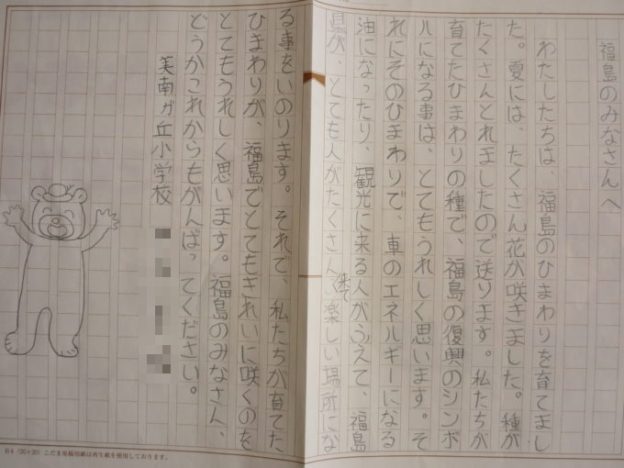 福島のみなさんへ
わたしたちは、福島のひまわりを育てまし
た。夏には、たくさん花が咲きました。種が
たくさんとれましたので送ります。私たちが
育てたひまわりの種で、福島の復興のシンボ
ルになる事は、とてもうれしく思います。そ
れにそのひまわりで、車のエネルギーになる
油になったり、観光に来る人がふえて、福島
県が、とても人がたくさん来て楽しい場所にな
る事をいのります。それで、私たちが育てた
ひまわりが、福島でとてもきれいに咲くのを
とてもうれしく思います。福島のみなさん、
どうかこれからもがんばってください。
美南ガ丘小学校
B4（20×20）こだま原稿用紙は再生紙を使用しております。